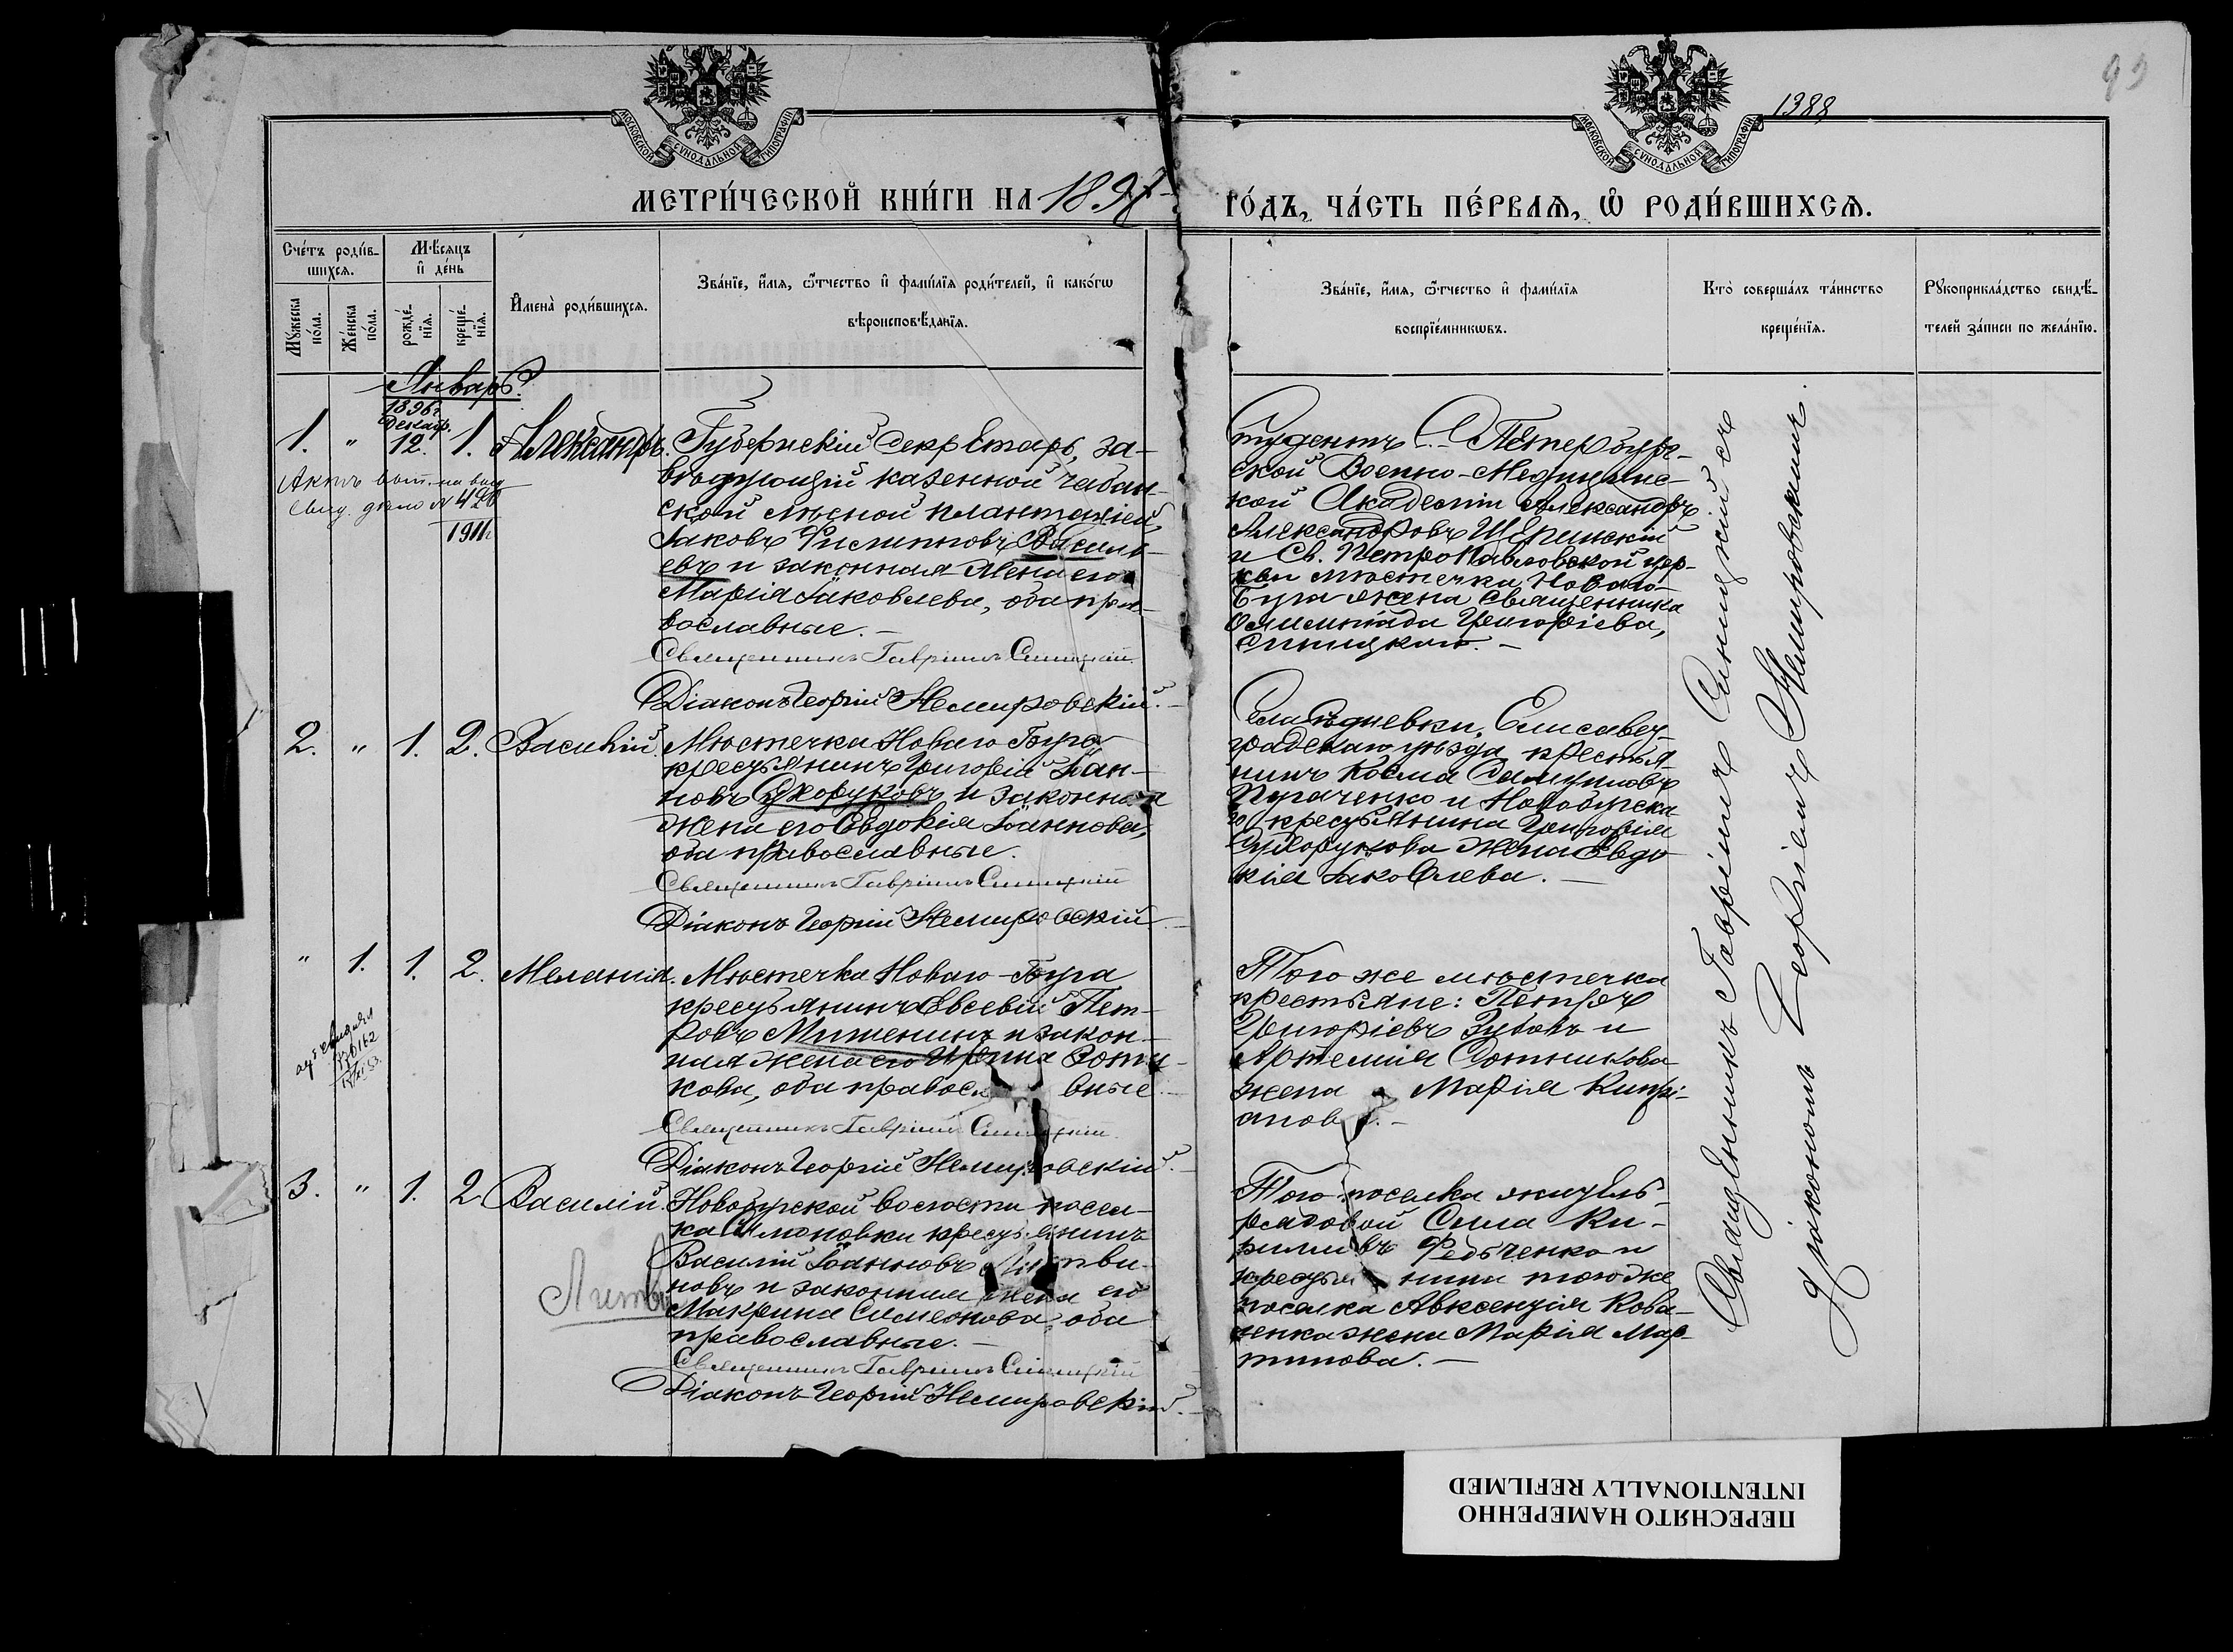 1388
МОСКОВСКОЙ СѴНОДАЛЬНОЙ ТИПОГРАФІИ
МОСКОВСКОЙ СѴНОДАЛЬНОЙ ТИПОГРАФІИ
МЕТРИ́ЧЕСКОЙ КНИ́ГИ НА 1897 ГО́ДЪ, ЧА́СТЬ ПЕ́РВАѦ, Ѡ҆ РОДИ́ВШИХСѦ.
Сче́тъ роди́в-
шихся.
Мѣ́сяцъ
и҆ де́нь
Мꙋ́жеска
по́ла.
Же́нска
по́ла.
рожде́-
нїя.
креще́-
нїя.
И҆мена̀ роди́вшихся.
Зва́нїе, и҆́мя, ѻ҆́тчество и҆ фамі́лїя роди́телей, и҆ како́гѡ
вѣроисповѣ́данїя.
Зва́нїе, и҆́мя, ѻ҆́тчество и҆ фамі́лїя
воспрїе́мникѡвъ.
Кто̀ соверша́лъ та́инство
креще́нїя.
Рꙋкоприкла́дство свидѣ́-
телей за́писи по жела́нїю.
Январь.
1896 г.
Декабр.
1. " 12. 1. Александръ.
Актъ вып. на выд
свид. дѣло № 420
1911 г
Губернскій Секретарь, за-
вѣдующій казенной чабан-
ской лѣсной плантаціей,
Іаковъ Филипповъ Василь-
евъ и законная жена его
Марія Іаковлева, оба пра-
вославные.-
Священникъ Гавріилъ Синицкій.
Діаконъ Георгій Немировскій.-
Студентъ С.-Петербург-
ской Военно-Медицинс-
кой Академіи Александръ
Александровъ Щепинскій
и Св. Петро Павловской цер-
кви мѣстечка Новаго-
Буга жена священника
Олимпіада Григоріева,
Синицкаго.-
2. " 1. 2. Василій.
Мѣстечка Новаго Буга
крестьянинъ Григорій Іоан-
новъ Сухоруковъ и законная
жена его Евдокія Іоаннова,
оба православные.
Священникъ Гавріилъ Синицкій
Діаконъ Георгій Немировскій.-
Села Елисавет-
градскаго уѣзда крестья-
нинъ Косма Самуиловъ
и Новобугска-
го крестьянина Григорія
Сухорукова жена Евдо-
кія Іаковлева.-
" 1. 1. 2. Меланія.
Мѣстечка Новаго-Буга
крестьянинъ Евсевій Пет-
ровъ Митенинъ и закон-
ная жена его Ирина Зоти-
кова, оба правосл вные.-
Священникъ Гавріилъ Синицкій.
Діаконъ Георгій Немировскій.-
Того же мѣстечка
крестьяне: Петръ
Григоріевъ Зубовъ и
Артемія Сотникова
жена Марія Кипрі-
анов .-
3. " 1. 2 Василій.
Новобугской волости посел-
ка крестьянинъ
Василій Іоанновъ Литви-
новъ и законная жена его
Макрина Симеонова, оба
православные.-
Литв
Священникъ Гавріилъ Синицкій
Діаконъ Георгій Немировскій.-
Того поселка житель
рядовой Сила Ки-
риловъ Федченко и
крестья нина того же
поселка Авксентія Кова-
ленка жена Марія Мар-
тинова.-
Священникъ Гавріилъ Синицкій съ
Діакономъ Георгіемъ Немировскимъ.
ПЕРЕСНЯТО НАМЕРЕННО
INTENTIONALLY REFILMED